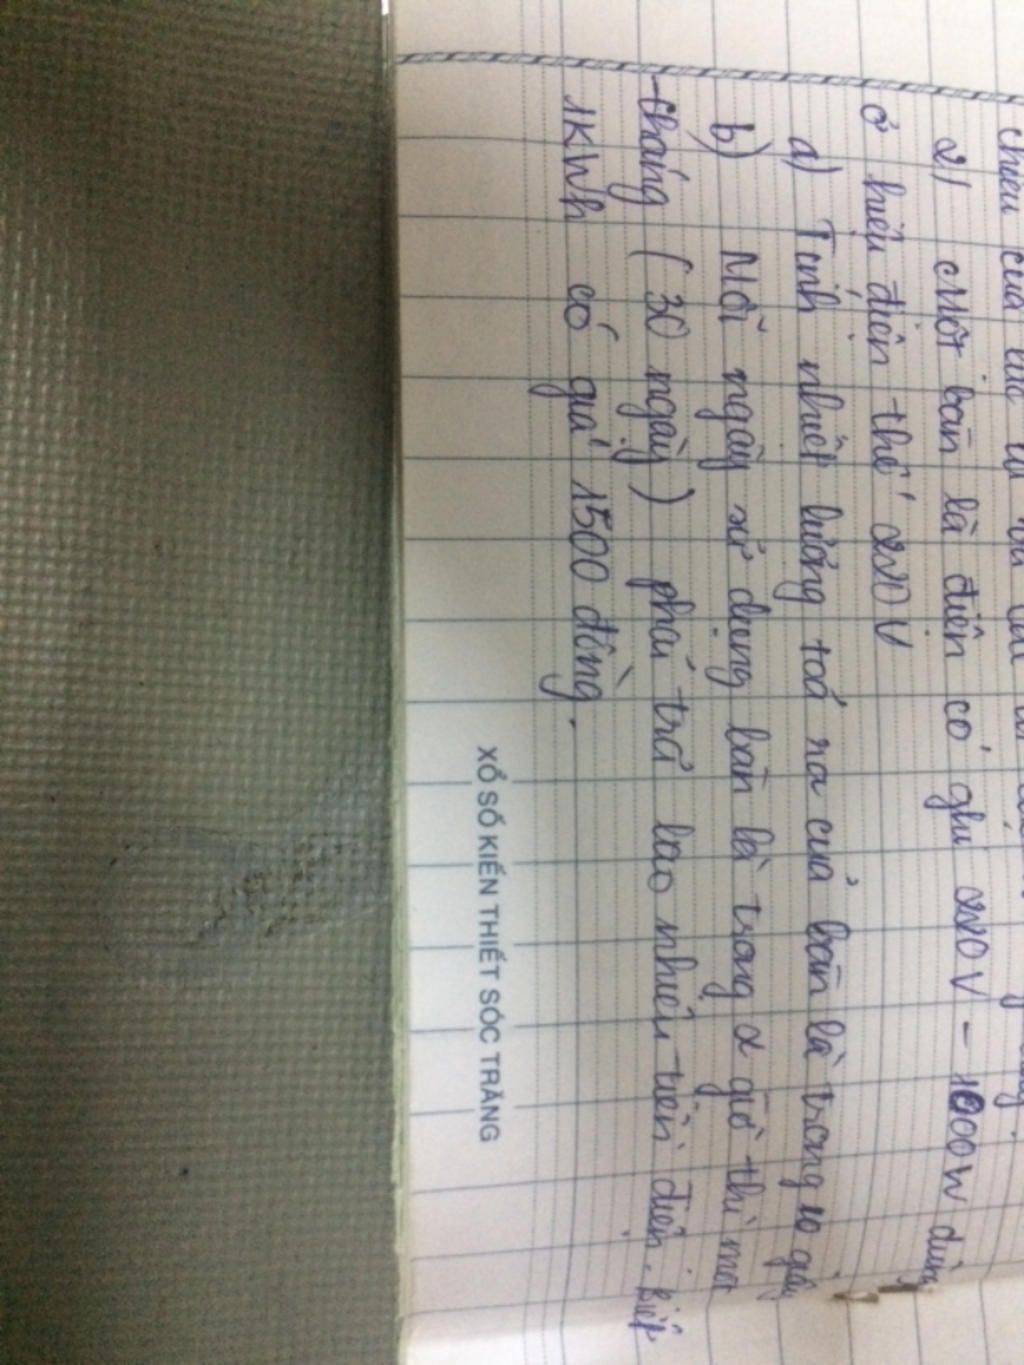 chiều của
2) Một bàn là điện có ghi 220V - 1000W dùng
ở hiệu điện thế 220V
a) Tính nhiệt lượng toả ra của bàn là trong 10 giây
b) Mỗi ngày sử dụng bàn là trong 2 giờ thì một
tháng (30 ngày) phải trả bao nhiêu tiền điện. Biết
1KWh có giá 1500 đồng.
XỔ SỐ KIẾN THIẾT SÓC TRĂNG